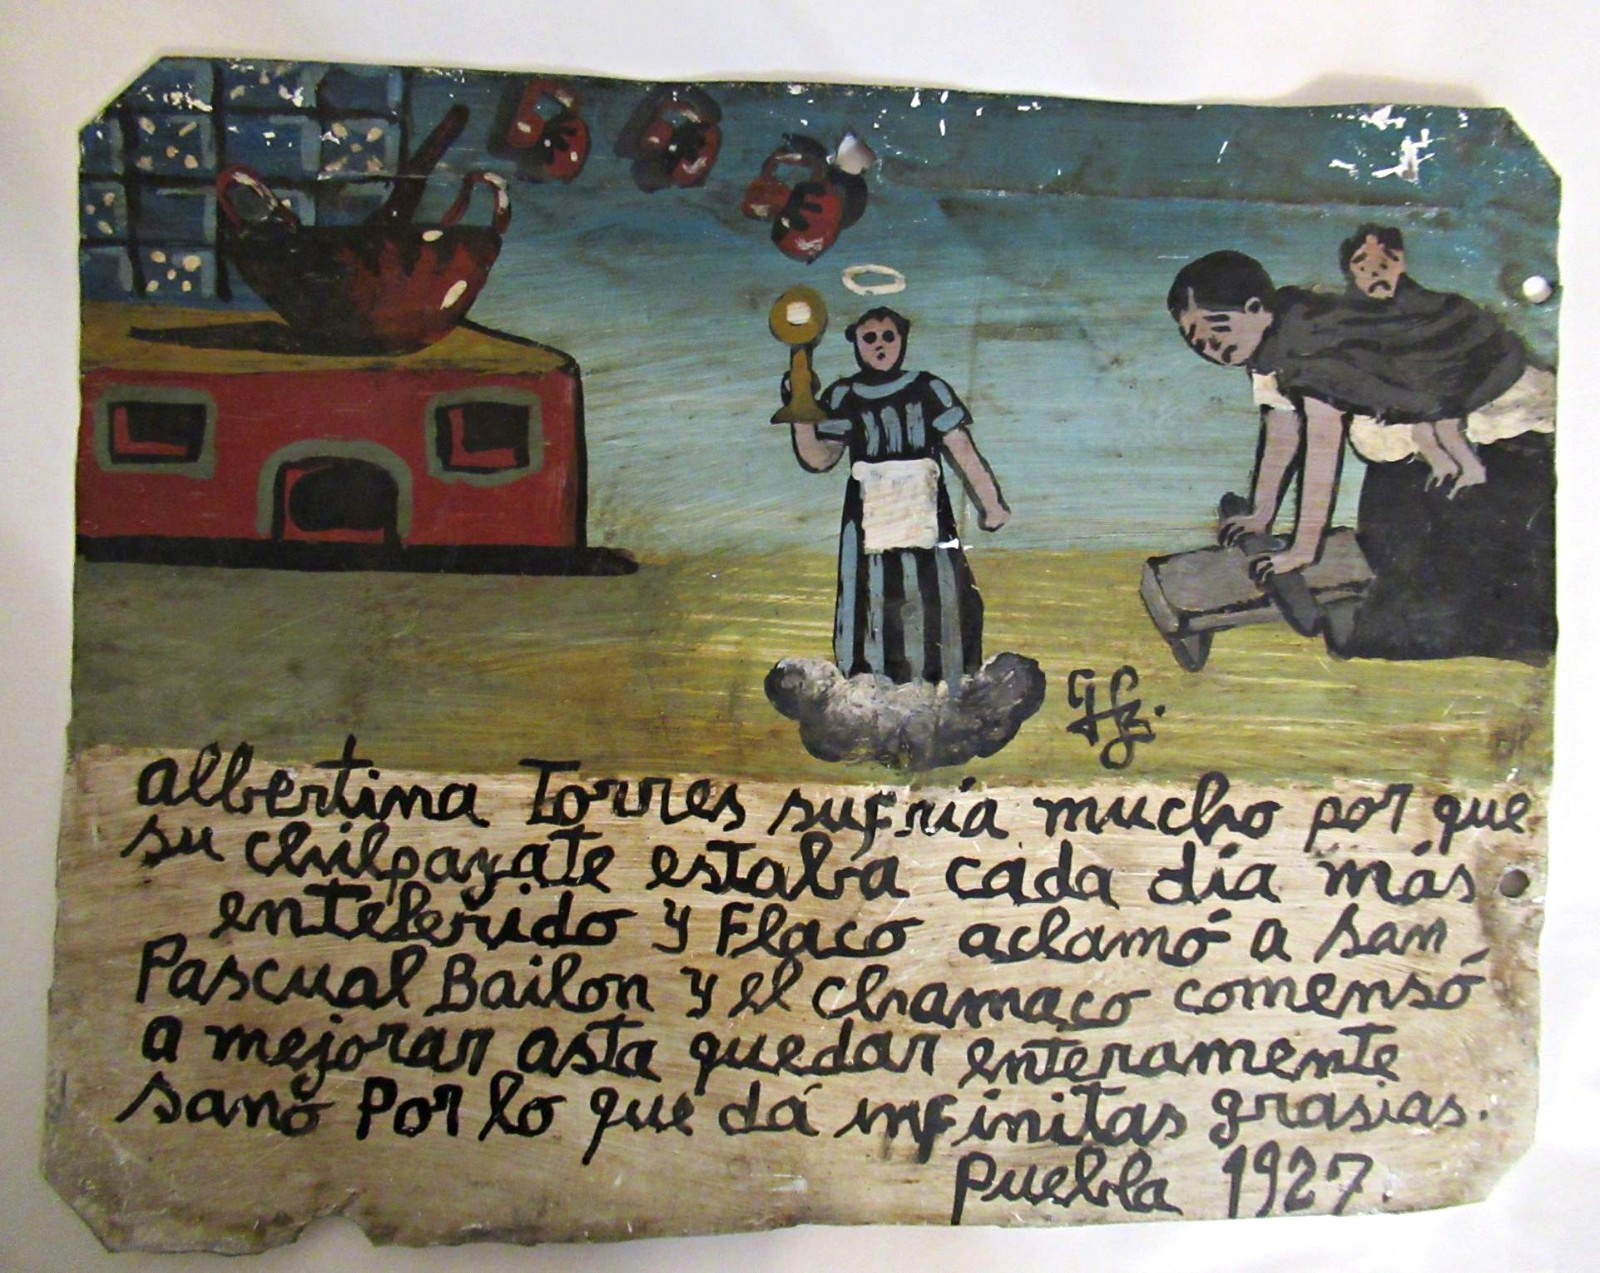 GHz.
albertina Torres sufría mucho por que
su chilpayate estaba cada día más
entelerido y Flaco aclamó a San
Pascual Bailon y el chamaco comensó
a mejorar asta quedar enteramente
sano Por lo que dá infinitas grasias.
Puebla 1927.